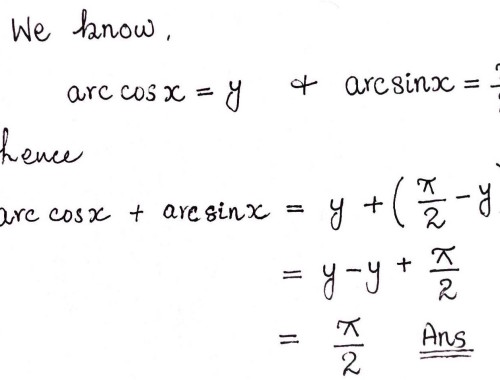 We know,
arc cos x = y & arc sin x =
hence
arc cos x + arc sin x = y + ( π/2 - y
= y - y + π/2
= π/2 Ans